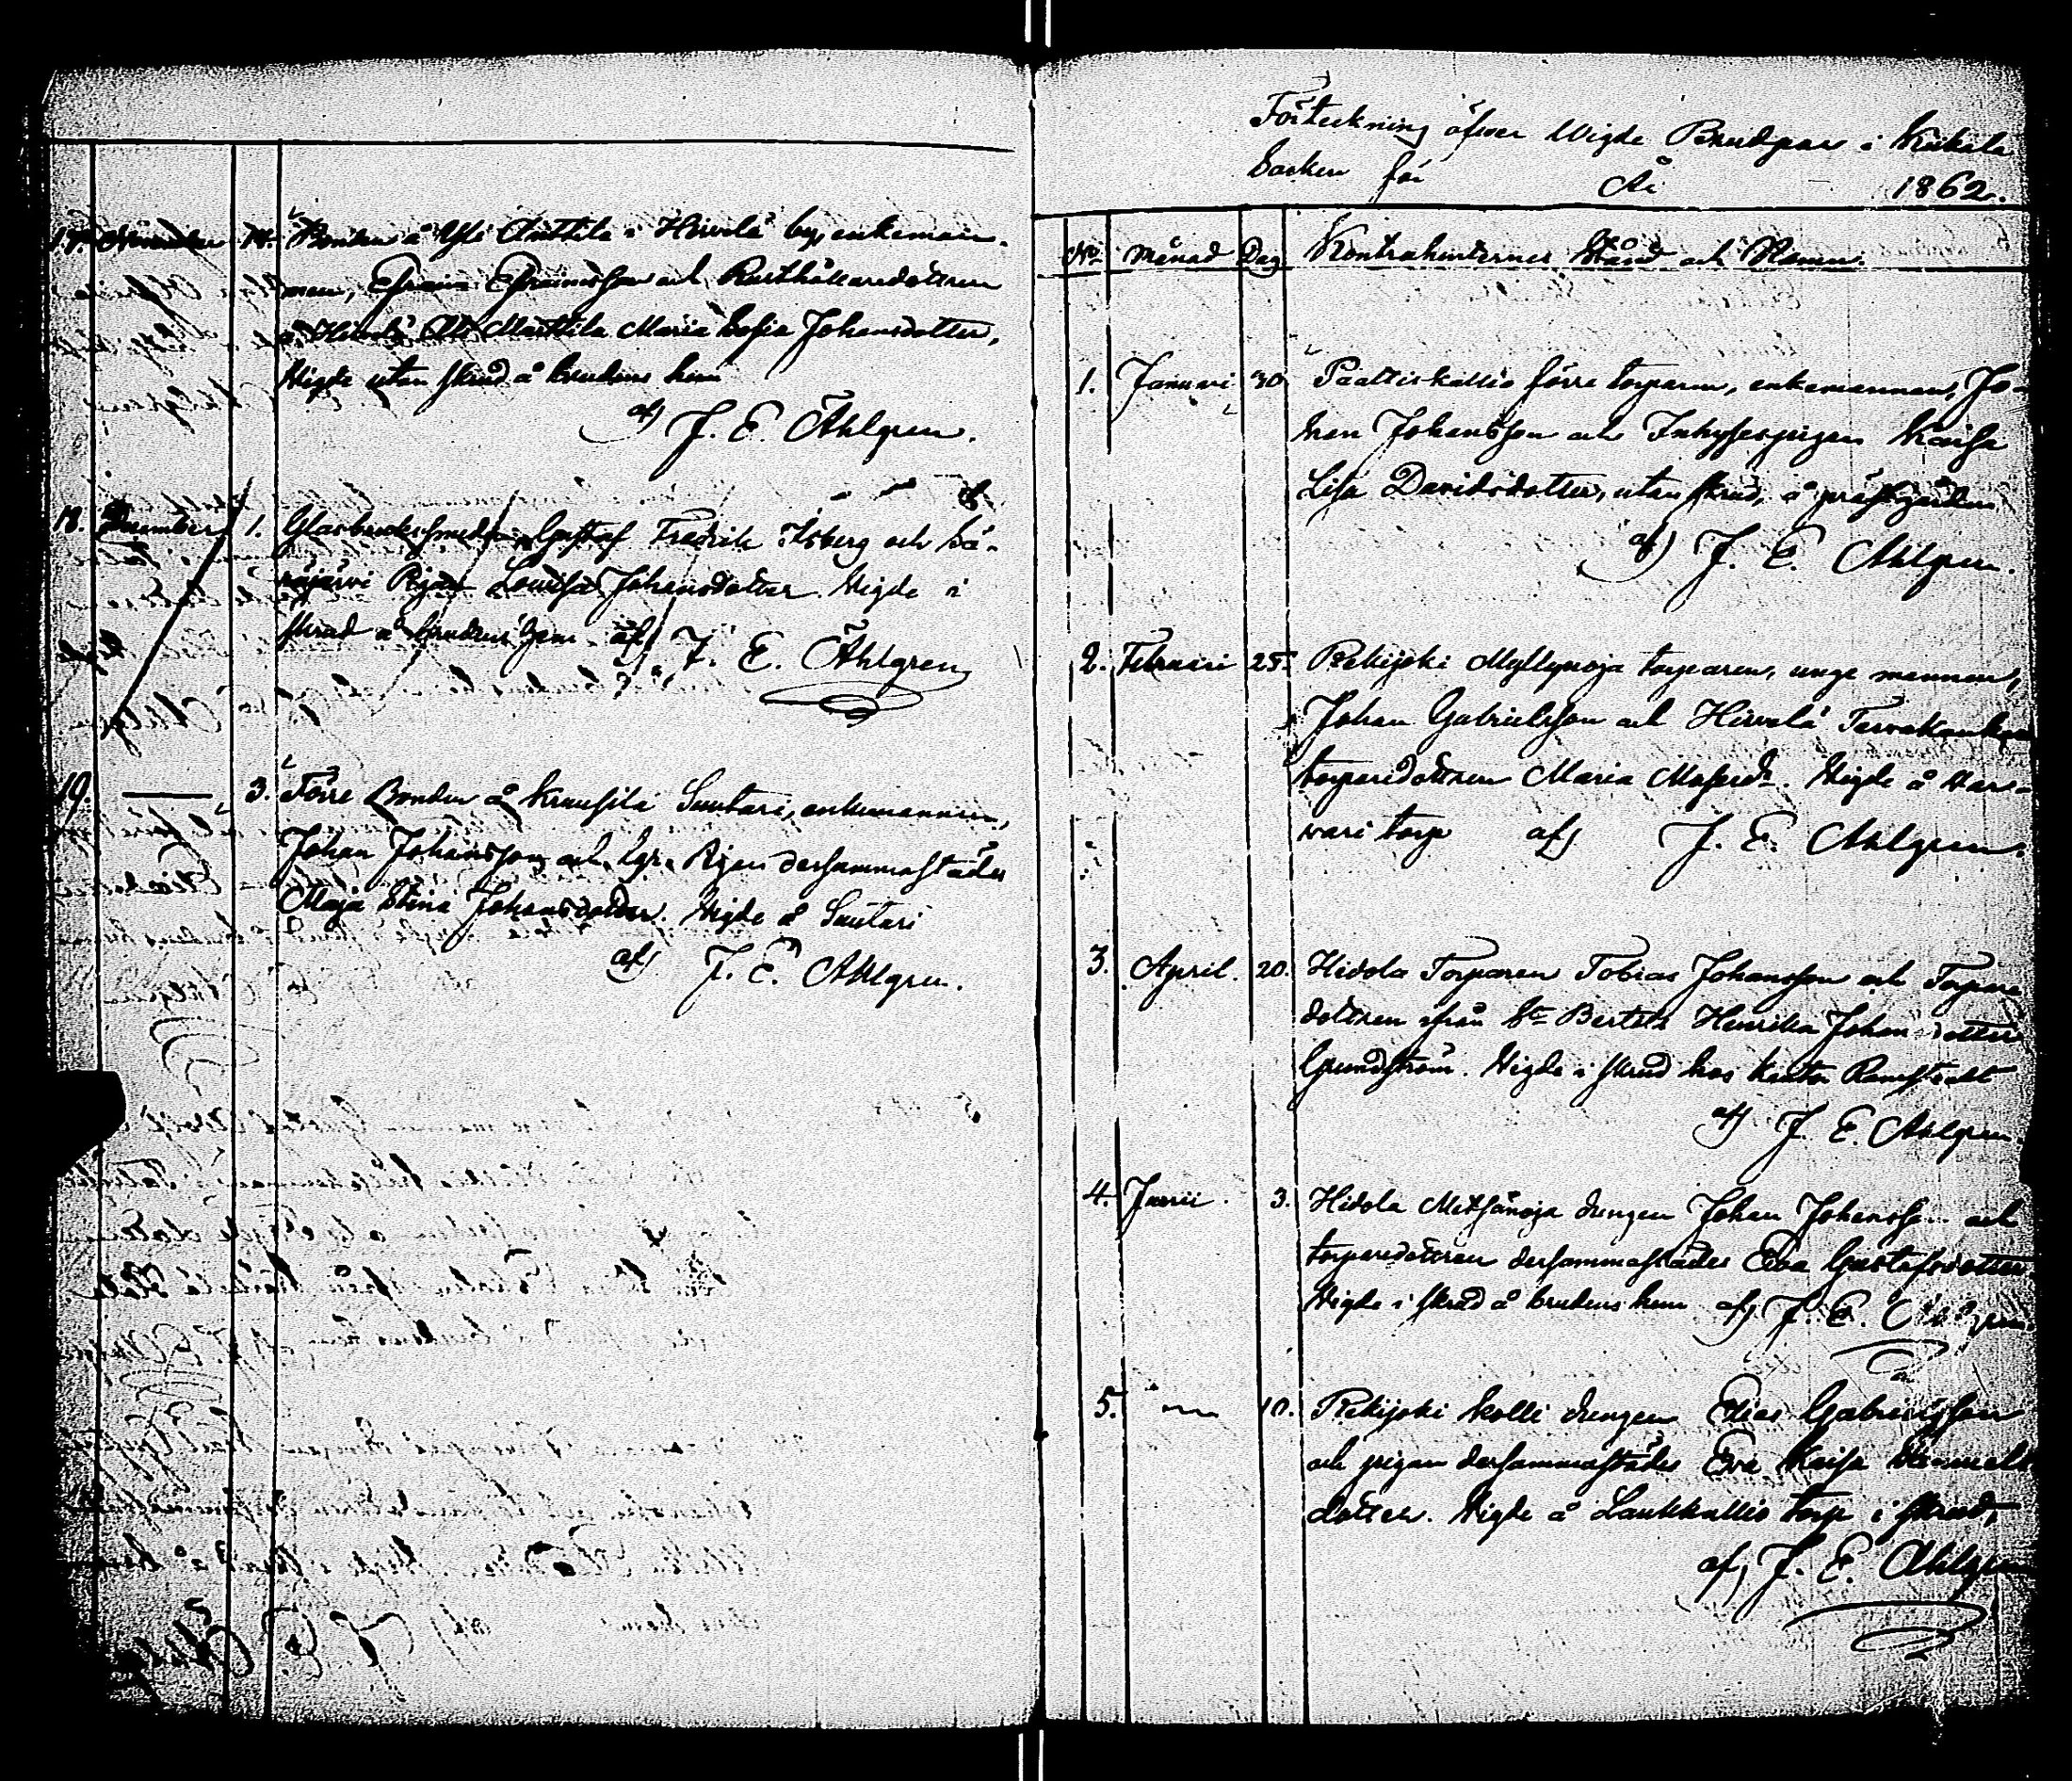 17. November 14. Bonden å Yli Anttila i Hirvelä by, enkeman-
men, Efraim Efraimsson och Rusthållaredottren
å Hirvelä Ali Marttila Maria Sofia Johansdotter,
Vigde utan skrud å brudens hem
af J. E. Åhlgren.
18. December 1. Glasbrukssmeden Gustaf Fredrik Isberg och Sä-
räjärvi Pigan Lovisa Johansdotter. Vigde i
skrud å brudens hem af J. E. Åhlgren
19. — 3. Förre Bonden å Kruusila Suutari, enkemannen,
Johan Johansson och Pigan dersammastädes
Maja Stina Johansdotter. Vigde å Suutari
af J. E. Ahlgren.
Förteckning öfwer Wigde Brudpar i Kiikala
Socken för År 1862.
No Månad Dag Kontrahenternes Stånd och Namn.
1. Januari 30 Paaltiskallio förre torparen, enkemannen, Jo-
han Johansson och Inhysespigan Kaisa
Lisa Davidsdotter, utan skrud, å prästgården
af J. E. Ahlgren.
2. Februari 25. Rekijoki Myllynoja torparen, unge mannen,
Johan Gabrielsson och Hirvelä
torparedottren Maria Vigde å Hare-
vari torp af J. E. Ahlgren.
3. April. 20. Hidola Torparen Tobias Johansson och Torpare
dottren från St Bertils Henrika Johansdotter
Grundström. Vigde i skrud hos Kantor Ramstedt
af J. E. Ahlgren
4. Junii. 3. Hidola Metsänoja drengen Johan Johansson och
torparedottren dersammastädes Eva Gustafsdotter
Vigde i skrud å brudens hem af J. E. Åhlgren.
5. 10. Rekijoki Kolli drengen Elias Gabrielsson
och pigan dersammastädes Eva Kaisa
dotter. Vigde å Laukkallio torp i skrud,
af J. E. Ahlgren